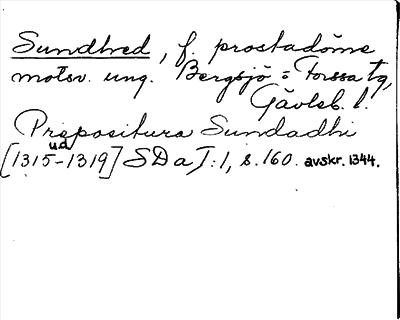 Sundhed, f. prostadöme
motsv. ung. Bergsjö o Forssa tg,
Gävleb. l.
Prepositura Sundadhi
[1315-1319] u.d. SD a T:1, s. 160. avskr. 1344.